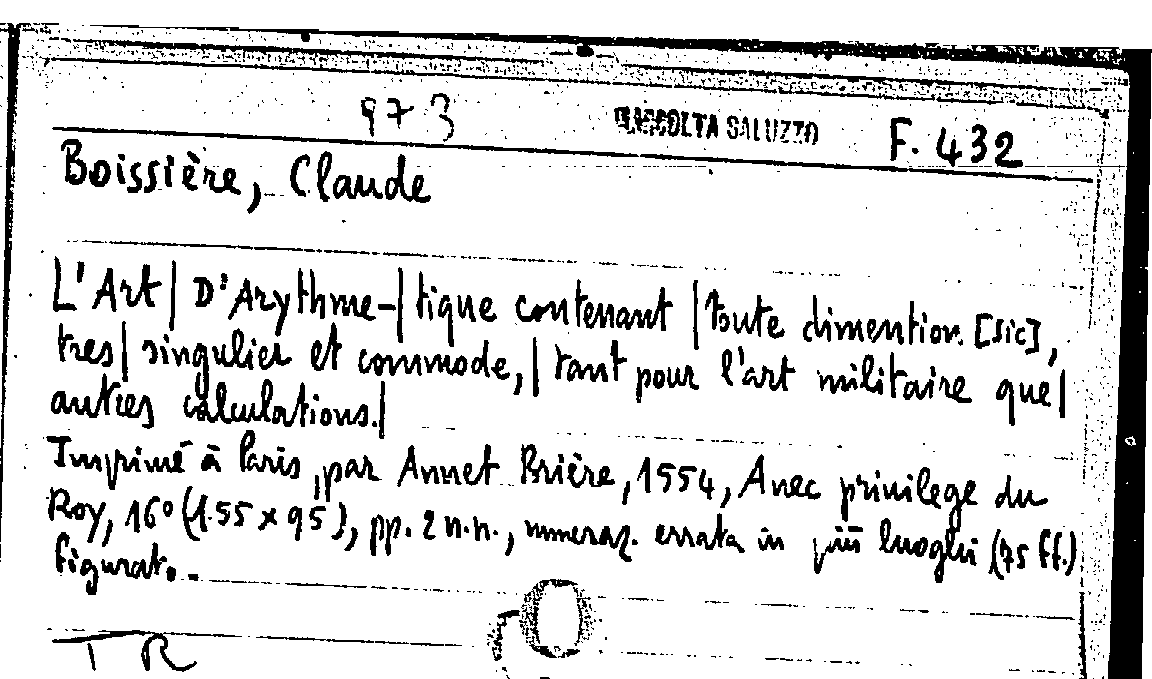 973 RACCOLTA SALUZZO F. 432
Boissière, Claude
L'Art| D'Arythme-| tique contenant | toute dimention [sic],
tres| singulier et commode,| tant pour l'art militaire que|
autres calculations.|
Imprimé à Paris, par Annet Brière, 1554, Avec privilege du
Roy, 16° (155 x 95), pp. 2 n.n., numeraz. errata in più luoghi (75 ff.)
figurat. -
T R